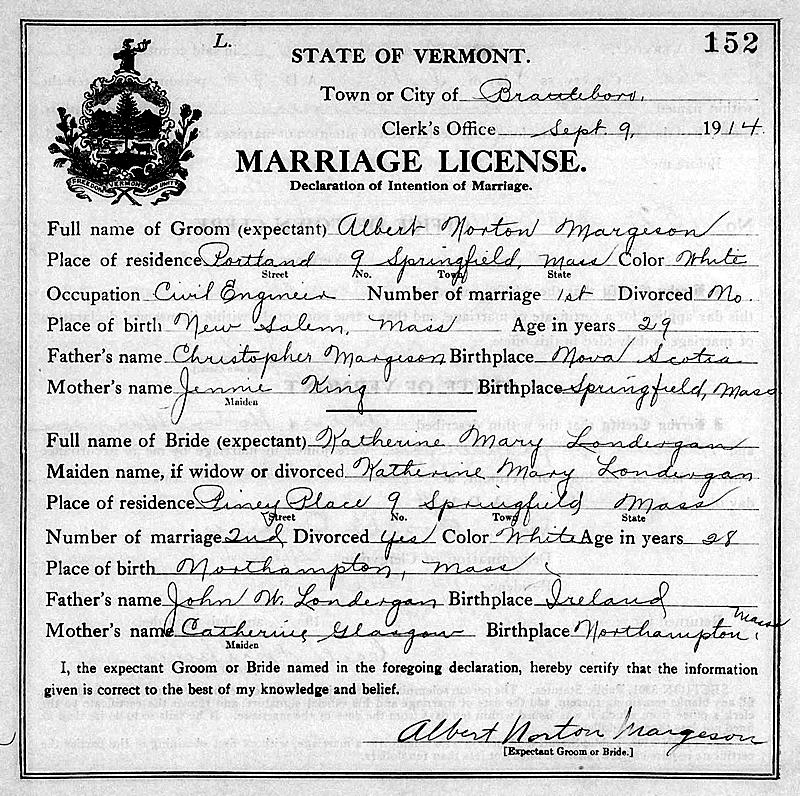 L.
152
STATE OF VERMONT.
Town or City of Brattleboro.
Clerk's Office Sept. 9, 1914.
FREEDOM VERMONT AND UNITY
MARRIAGE LICENSE.
Declaration of Intention of Marriage.
Full name of Groom (expectant) Albert Norton Margeson
Place of residence Portland 9 Springfield, Mass Color White
Street No. Town State
Occupation Civil Engineer Number of marriage 1st Divorced No.
Place of birth New Salem, Mass Age in years 29
Father's name Christopher Margeson Birthplace Nova Scotia
Mother's name Jennie King Birthplace Springfield, Mass
Maiden
Full name of Bride (expectant) Katherine Mary Londergan
Maiden name, if widow or divorced Katherine Mary Londergan
Place of residence Piney Place 9 Springfield Mass
Street No. Town State
Number of marriage 2nd Divorced Yes Color White Age in years 28
Place of birth Northampton, Mass
Father's name John W. Londergan Birthplace Ireland
Mother's name Catherine Glasgow Birthplace Northampton, Mass
Maiden
I, the expectant Groom or Bride named in the foregoing declaration, hereby certify that the information
given is correct to the best of my knowledge and belief.
Albert Norton Margeson
[Expectant Groom or Bride.]